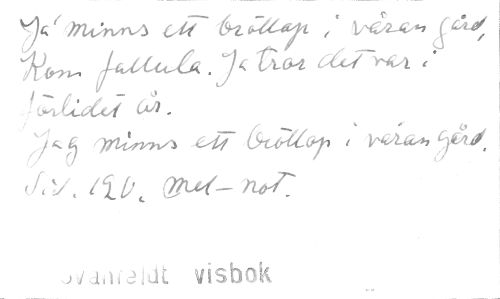 Ja' minns ett bröllop i våran gård,
Kom fallula. Ja tror det var i
förlidet år.
Jag minns ett bröllop i våran gård.
Sid. 120. Mel-not.
Svanfeldt visbok